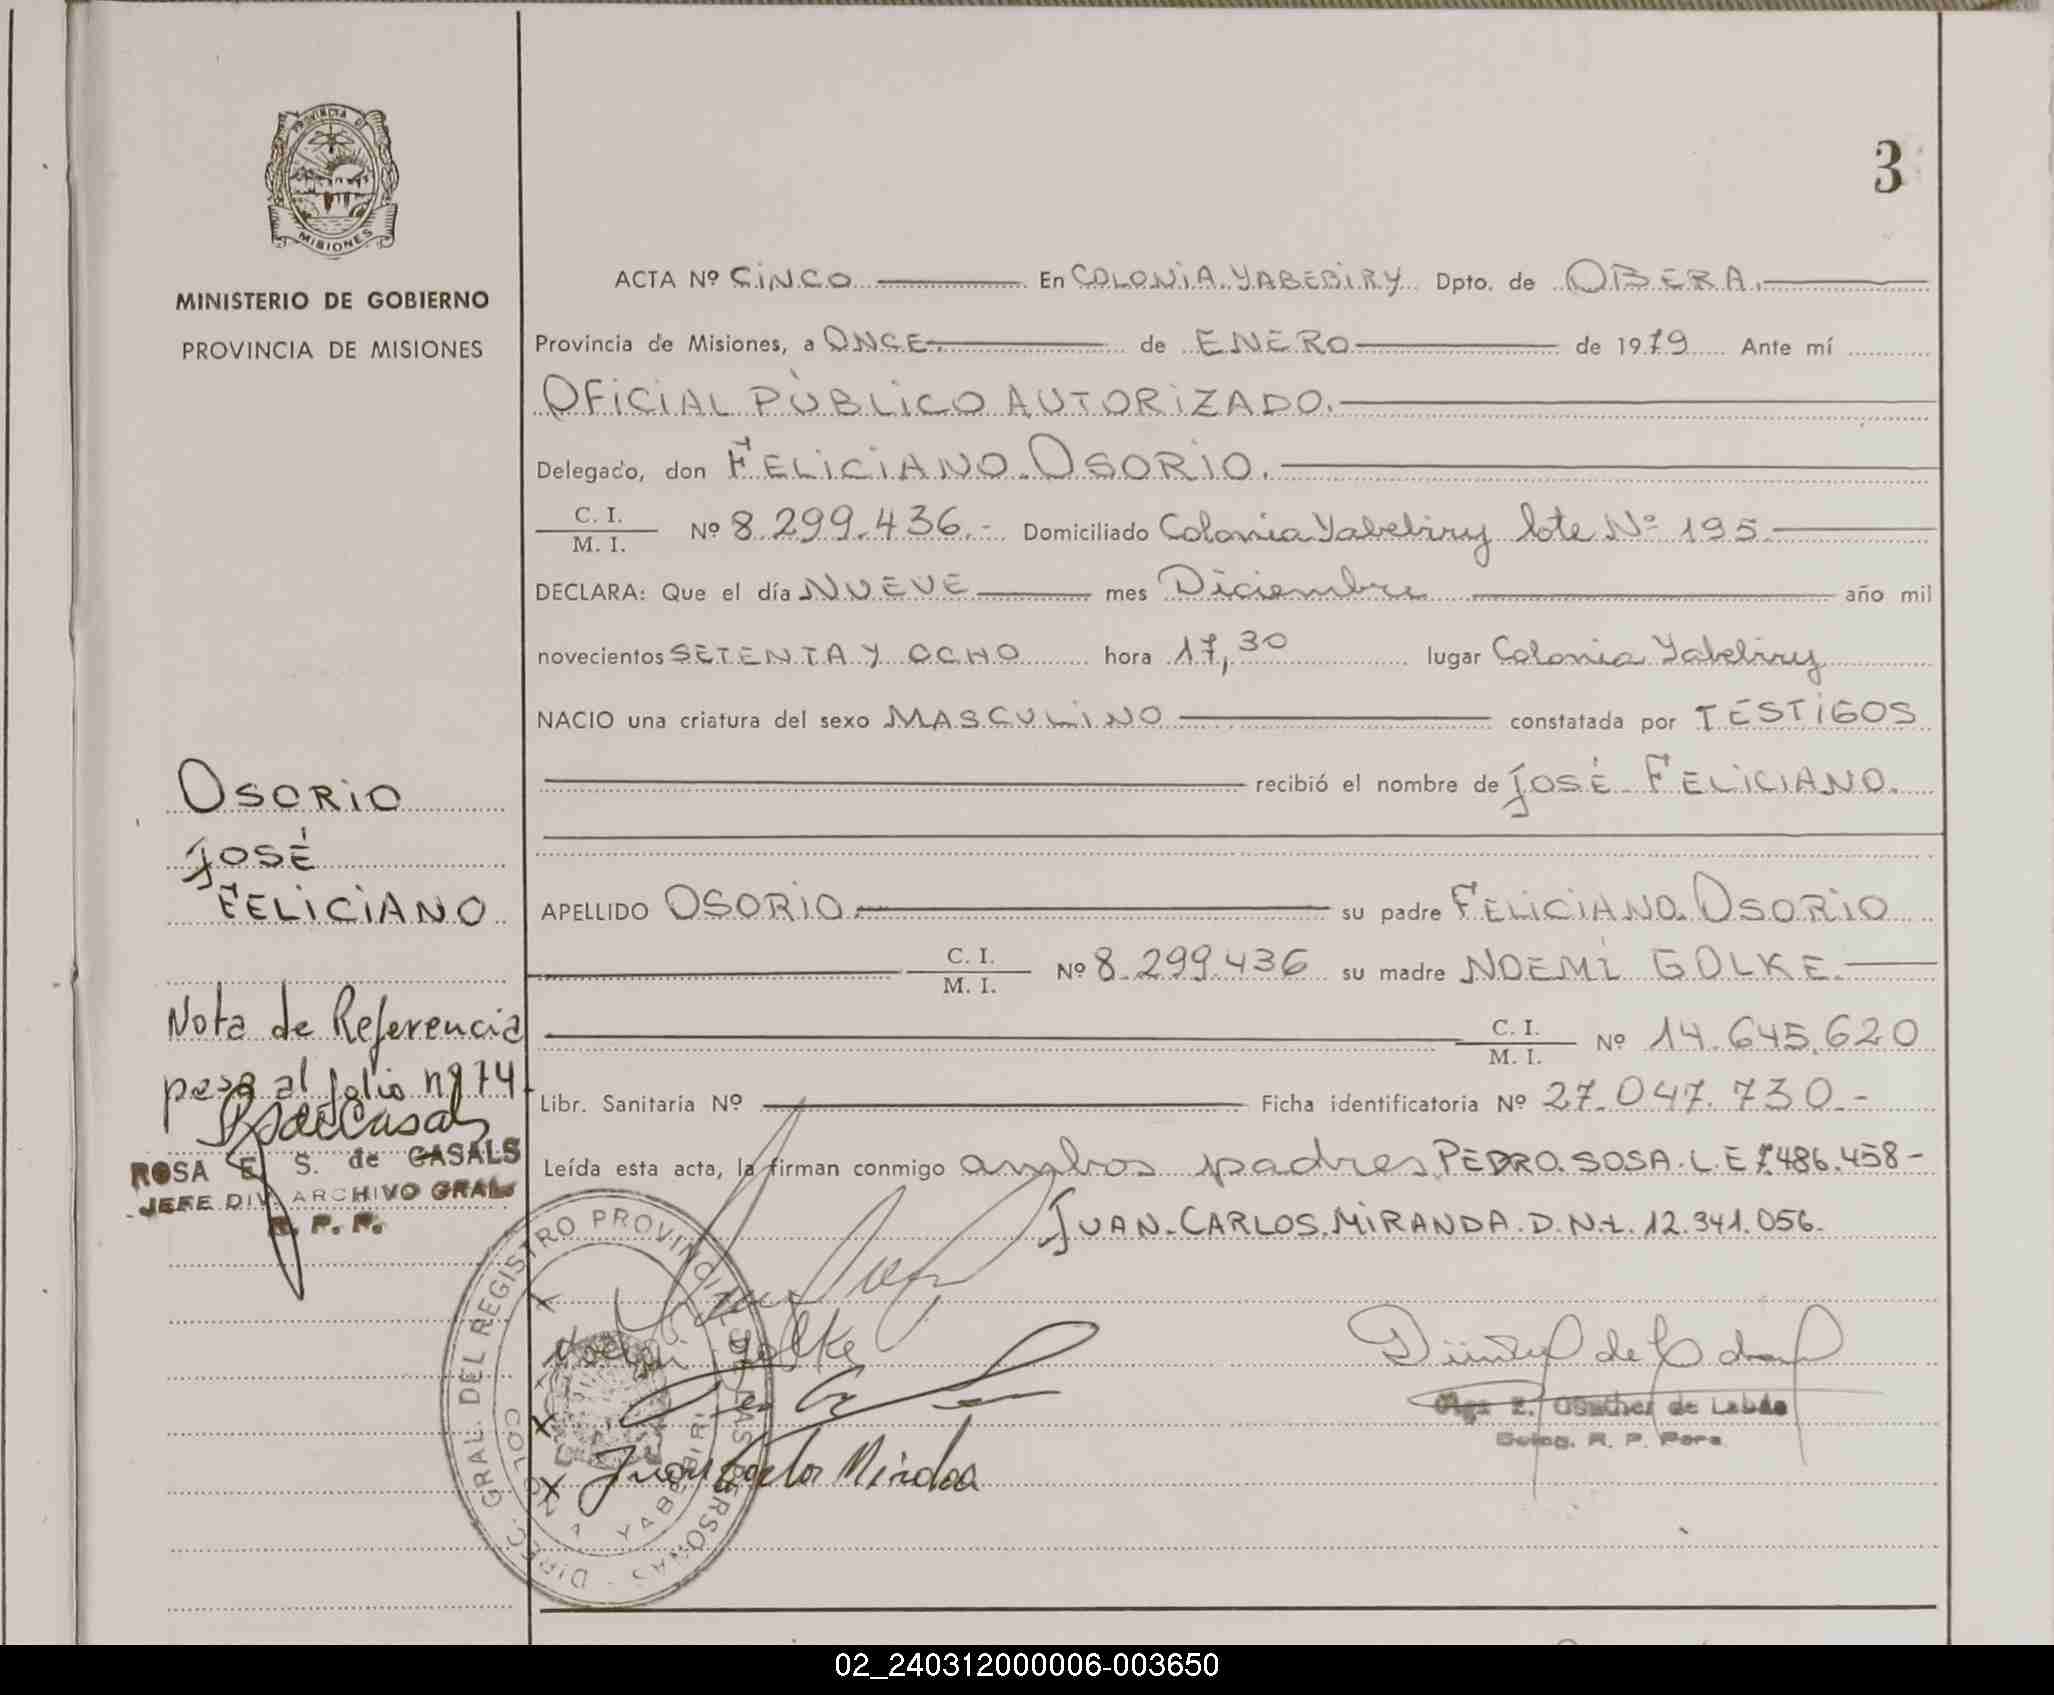 PROVINCIA DE
MISIONES
MINISTERIO DE GOBIERNO
PROVINCIA DE MISIONES
3
ACTA Nº CINCO En COLONIA YABEBIRY Dpto. de OBERA.
Provincia de Misiones, a ONCE. de ENERO de 1979 Ante mí
OFICIAL PÚBLICO AUTORIZADO.
Delegado, don FELICIANO OSORIO.
C. I.
M. I. Nº 8.299.436.- Domiciliado Colonia Yabebiry lote Nº 195.
DECLARA: Que el día NUEVE mes Diciembre año mil
novecientos SETENTA Y OCHO hora 17,30 lugar Colonia Yabebiry
NACIO una criatura del sexo MASCULINO constatada por TESTIGOS
recibió el nombre de JOSÉ FELICIANO.
APELLIDO OSORIO. su padre FELICIANO OSORIO
C. I.
M. I. Nº 8.299.436 su madre NOEMI GOLKE.
C. I.
M. I. Nº 14.645.620
Libr. Sanitaria Nº Ficha identificatoria Nº 27.047.730.-
Leída esta acta, la firman conmigo ambos padres PEDRO SOSA L.E 7.486.458-
JUAN CARLOS MIRANDA D.N.I. 12.341.056.
OSORIO
JOSÉ
FELICIANO
Nota de Referencia
pasa al folio nº 74
ROSA E. S. de CASALS
JEFE DIV. ARCHIVO GRAL.
R. P. P.
DIREC. GRAL. DEL REGISTRO PROVINCIAL DE LAS PERSONAS
COLONIA YABEBIRI
Noemi Golke
Juan Carlos Miranda
Olga E. Günther de Labão
Deleg. R. P. Pers.
02_240312000006-003650